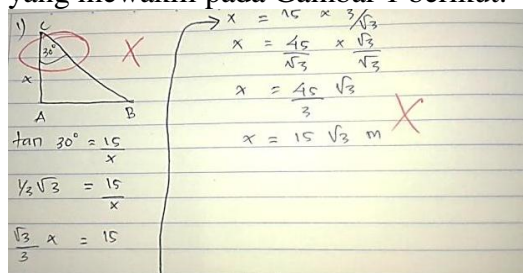 yang mewakili pada Gambar 1 berikut.
1)
C
30°
x
A B
tan 30° = 15/x
1/3 √3 = 15/x
√3/3 x = 15
x = 15 × 3/√3
x = 45/√3 × √3/√3
x = 45/3 √3
x = 15 √3 m